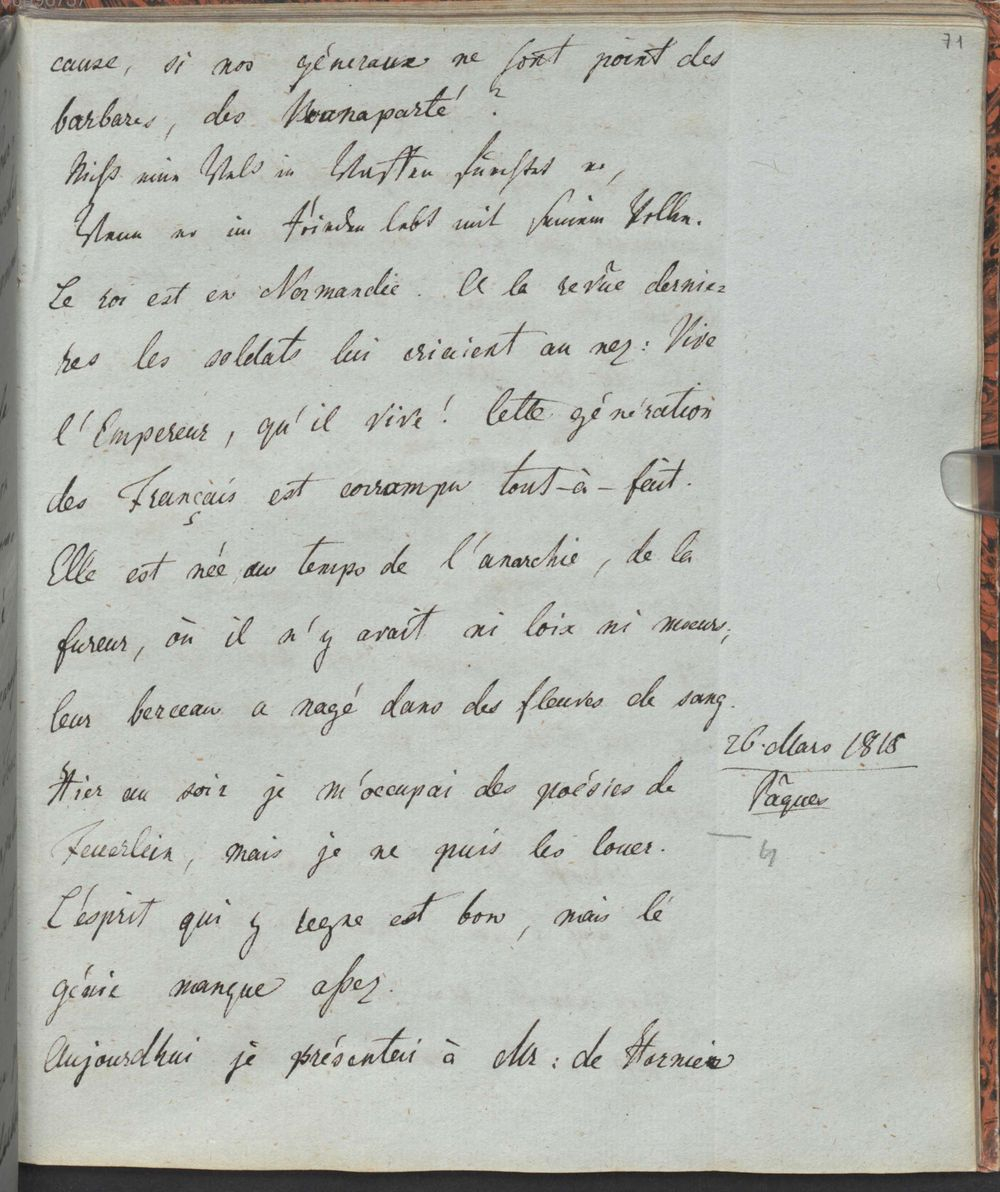 71
cause, si nos géneraux ne sont point des
barbares, des Bonaparté?
Nicht eine Welt in Waffen fürchtet er,
Wenn er im Frieden lebt mit seinem Volke.
Le roi est en Normandie. A la revũe dernie=
res les soldats lui criaient au nez: Vive
l'Empereur, qu'il vive! Cette génération
des Français est corrampu tout-à-fait.
Elle est née au temps de l'anarchie, de la
fureur, òu il n'y avait ni loix ni moeurs,
leur berceau a nagé dans des fleuves de sang.
26. Mars 1815
Hier au soir je m'occupai des poésies de
Pâques
Feuerlein, mais je ne puis les louer.
L'ésprit qui y regne est bon, mais lé
génie manque aßez.
Aujourdhui je présentai à Mr: de Hornier